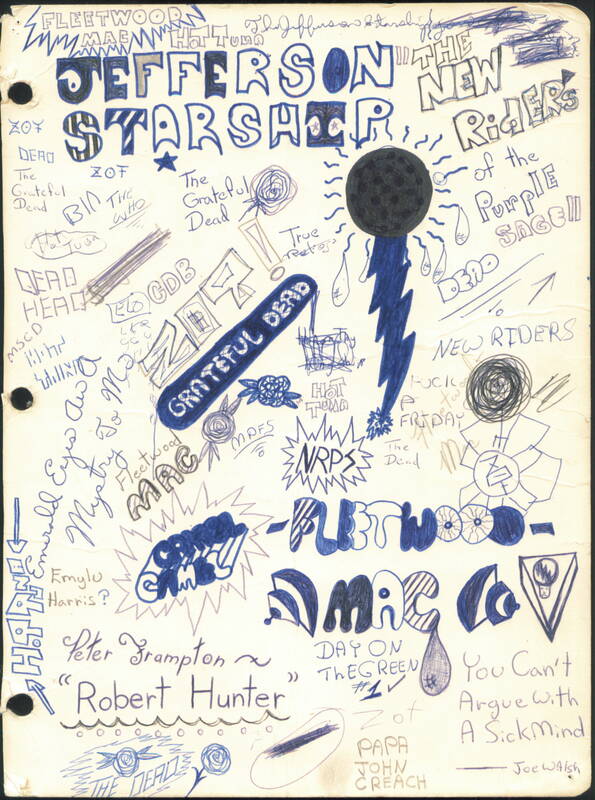 FLEETWOOD
MAC
HOT TUNA
The Jefferson Starship
JEFFERSON
STARSHIP
THE
NEW
RIDER'S
of the
PURPLE
SAGE!!
ZOF
DEAD
ZOF
The
Grateful
Dead
BIN
THE
WHO
The
Grateful
Dead
HOT
TUNA
True
DEAD
HEAD
ELO
CDB
MSCD
GRATEFUL DEAD
DEAD
NEW RIDERS
HOT
TUNA
FUCK
A
FRIDAY
The
Dead
Emerald Eyes
Mystery To Me
Fleetwood
MAC
MDFS
NRPS
-FLEETWOOD-
MAC
HOT TUNA
Emylu
Harris?
Peter Frampton ~
"Robert Hunter"
DAY ON
THE GREEN
#1
You Can't
Argue With
A Sick Mind
— Joe Walsh
Zot
THE DEAD
PAPA
JOHN
CREACH